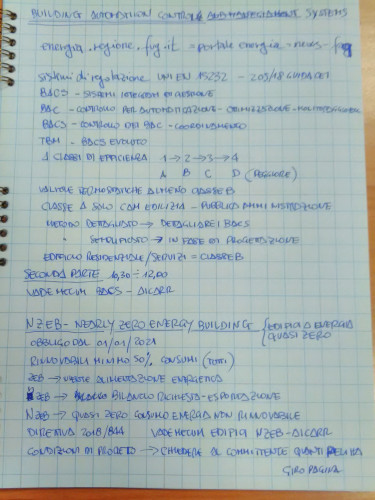 BUILDING AUTOMATION CONTROL AND MANAGEMENT SYSTEMS
energia.regione.fvg.it = portale energia - news - fvg
SISTEMI DI REGOLAZIONE UNI EN 15232 - 205/18 GUIDA CEI
BACS - SISTEMI INTEGRATI DI GESTIONE
BAC - CONTROLLO PER AUTOMATIZZAZIONE - OTTIMIZZAZIONE -
BACS - CONTROLLO DEI BAC - COORDINAMENTO
TBM - BACS EVOLUTO
4 CLASSI DI EFFICIENZA 1 → 2 → 3 → 4
A B C D (PEGGIORE)
VALVOLE TERMOSTATICHE ALMENO CLASSE B
CLASSE A SOLO CAM EDILIZIA - PUBBLICA AMMINISTRAZIONE
METODO DETTAGLIATO → DETTAGLIARE I BACS
" SEMPLIFICATO → IN FASE DI PROGETTAZIONE
EDIFICIO RESIDENZIALE/SERVIZI = CLASSE B
SECONDA PARTE 10,30 ÷ 12,00
VADEMECUM BACS - AICARR
NZEB - NEARLY ZERO ENERGY BUILDING { EDIFICI A ENERGIA
QUASI ZERO
OBBLIGO DAL 01/01/2021
RINNOVABILI MINIMO 50% CONSUMI (TOTALI)
ZEB → ALIMENTAZIONE ENERGETICA
ZEB → BILANCIO RICHIESTA - ESPORTAZIONE
NZEB → QUASI ZERO CONSUMO ENERGIA NON RINNOVABILE
DIRETTIVA 2018/844 VADEMECUM EDIFICI NZEB - AICARR
CONDIZIONI DI PROGETTO → CHIEDERE AL COMMITTENTE QUANTI
GIRO PAGINA